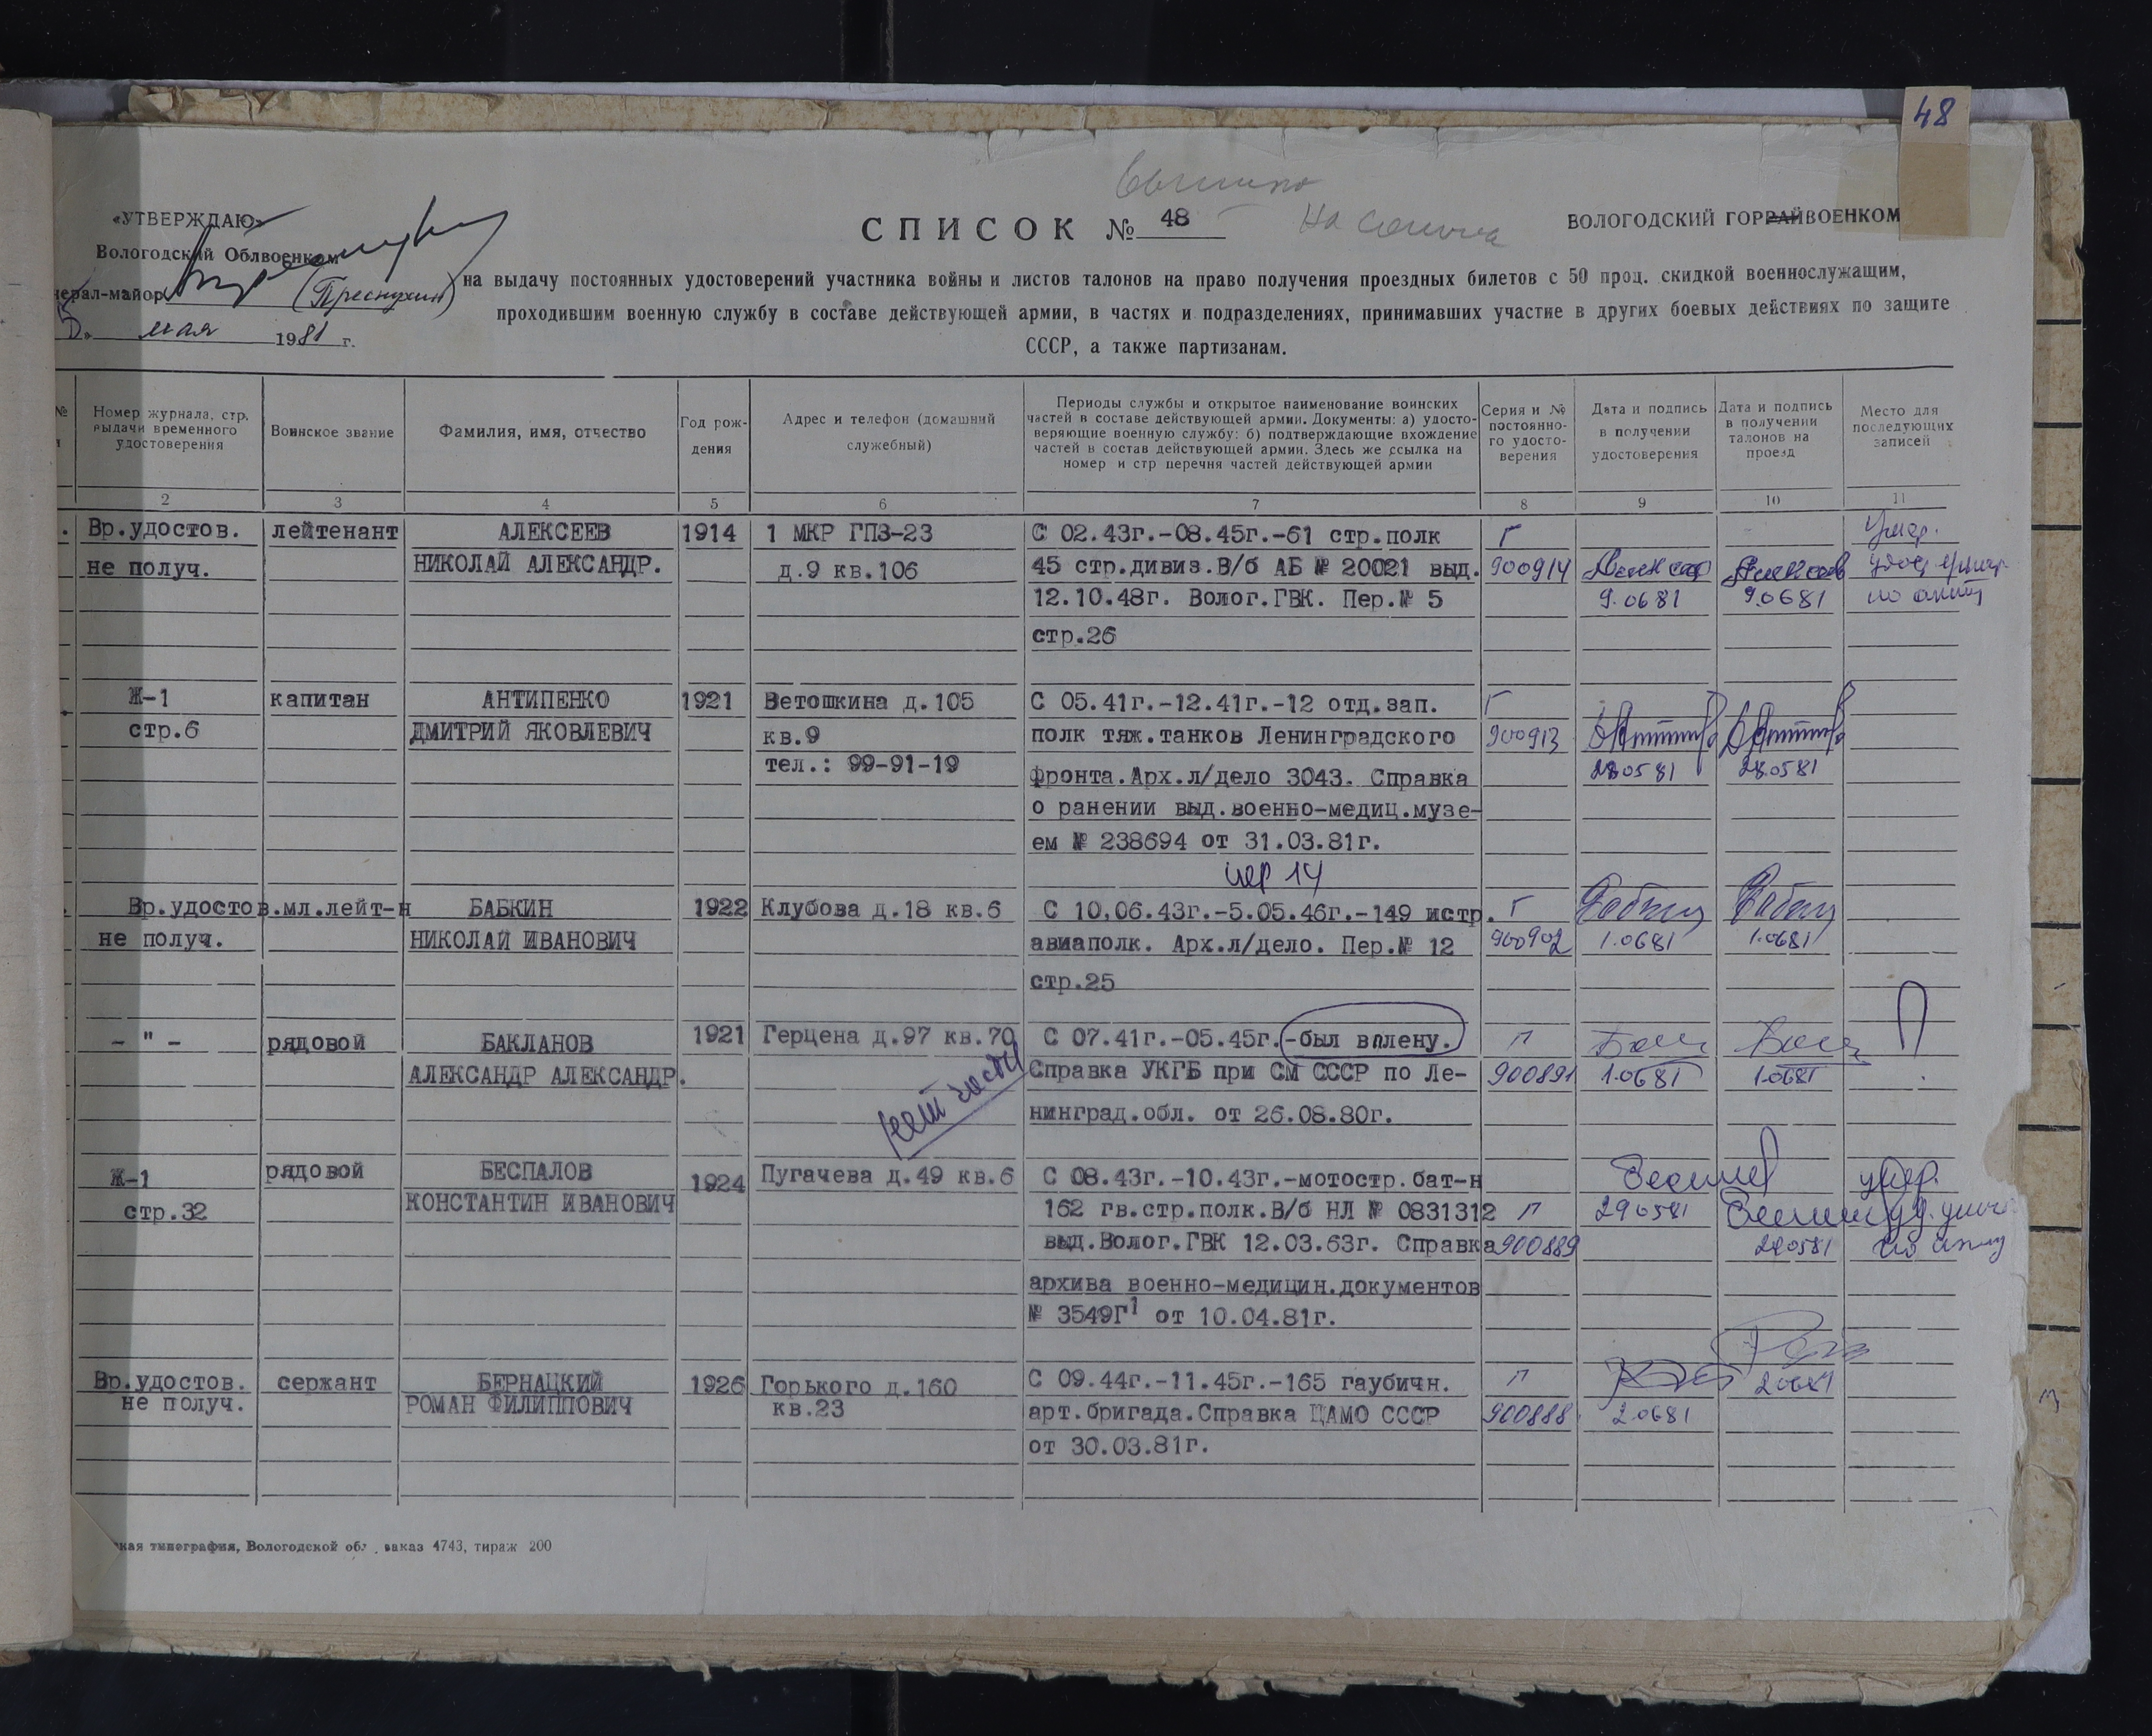 48
«УТВЕРЖДАЮ»
Вологодский Облвоенком
нерал-майор (Преснухин)
мая 1981 г.
СПИСОК № 48
ВОЛОГОДСКИЙ ГОРРАЙВОЕНКОМ
на выдачу постоянных удостоверений участника войны и листов талонов на право получения проездных билетов с 50 проц. скидкой военнослужащим,
проходившим военную службу в составе действующей армии, в частях и подразделениях, принимавших участие в других боевых действиях по защите
СССР, а также партизанам.
№
Номер журнала, стр.
выдачи временного
удостоверения
Воинское звание
Фамилия, имя, отчество
Год рож-
дения
Адрес и телефон (домашний
служебный)
Периоды службы и открытое наименование воинских
частей в составе действующей армии. Документы: а) удосто-
веряющие военную службу; б) подтверждающие вхождение
частей в состав действующей армии. Здесь же ссылка на
номер и стр перечня частей действующей армии
Серия и №
постоянно-
го удосто-
верения
Дата и подпись
в получении
удостоверения
Дата и подпись
в получении
талонов на
проезд
Место для
последующих
записей
2 3 4 5 6 7 8 9 10 11
Вр.удостов. лейтенант АЛЕКСЕЕВ 1914 1 МКР ГПЗ-23 С 02.43г.-08.45г.-61 стр.полк Г Умер.
не получ. НИКОЛАЙ АЛЕКСАНДР. д.9 кв.106 45 стр.дивиз.В/б АБ № 20021 выд. 900914
12.10.48г. Волог.ГВК. Пер.№ 5 9.0681 9.0681 по акту
стр.26
Ж-1 капитан АНТИПЕНКО 1921 Ветошкина д.105 С 05.41г.-12.41г.-12 отд.зап. Г
стр.6 ДМИТРИЙ ЯКОВЛЕВИЧ кв.9 полк тяж.танков Ленинградского 900913
тел.: 99-91-19 фронта.Арх.л/дело 3043. Справка 280581 28.0581
о ранении выд.военно-медиц.музе-
ем № 238694 от 31.03.81г.
пер 14
Вр.удостов. мл.лейт-н БАБКИН 1922 Клубова д.18 кв.6 С 10,06.43г.-5.05.46г.-149 истр. Г
не получ. НИКОЛАЙ ИВАНОВИЧ авиаполк. Арх.л/дело. Пер.№ 12 900902 1.0681 1.0681
стр.25
- " - рядовой БАКЛАНОВ 1921 Герцена д.97 кв.70 С 07.41г.-05.45г.-был вплену. Г
АЛЕКСАНДР АЛЕКСАНДР. нет части Справка УКГБ при СМ СССР по Ле- 900891 1.0681 1.0681
нинград.обл. от 26.08.80г.
Ж-1 рядовой БЕСПАЛОВ 1924 Пугачева д.49 кв.6 С 08.43г.-10.43г.-мотостр.бат-н умер.
стр.32 КОНСТАНТИН ИВАНОВИЧ 162 гв.стр.полк.В/б НЛ № 0831312 Г 290581
выд.Волог.ГВК 12.03.63г. Справка 900889 290581
архива военно-медицин.документов
№ 3549Г1 от 10.04.81г.
Вр.удостов. сержант БЕРНАЦКИЙ 1926 Горького д.160 С 09.44г.-11.45г.-165 гаубичн. Г 20681
не получ. РОМАН ФИЛИППОВИЧ кв.23 арт.бригада.Справка ЦАМО СССР 900888 2.0681
от 30.03.81г.
кая типография, Вологодской обл., заказ 4743, тираж 200